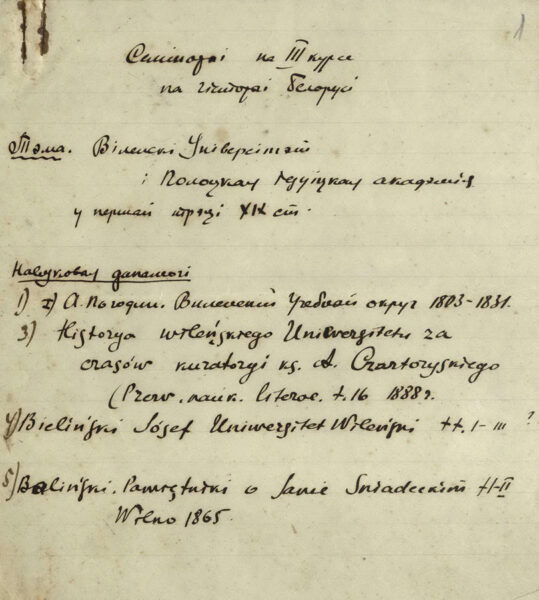 1
Семінары на III курсе
па гісторыі Беларусі
Тэма. Віленскі Унівэрсітэт
і Полоцкая езуіцкая акадэмія
у першай трэці XIX ст.
Навуковыя дапамогі
1) 2) А. Погодин. Виленский Учебный округ 1803-1831.
3) Historya wileńskiego Uniwersytetu za
czasów kuratorji ks. A. Czartoryskiego
(Przew. nauk. literac. t. 16 1888 г.
4) Bieliński Józef Uniwersytet Wileński tt. I-III ?
5) Baliński. Pamiętniki o Janie Śniadeckim t I-II
Wilno 1865.